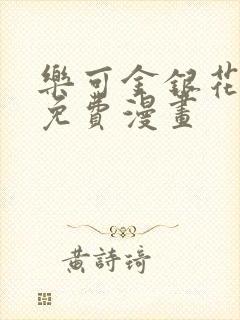 樂可金銀花
免費漫畫
黃詩琦